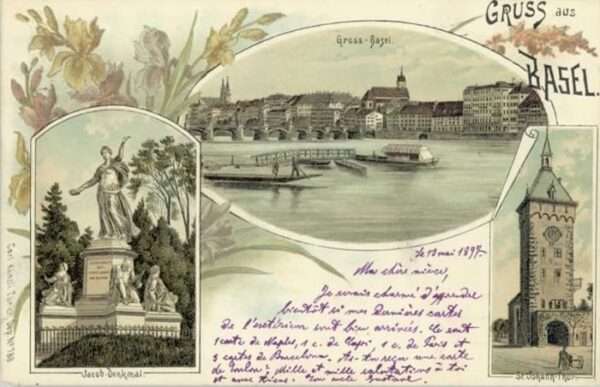 GRUSS aus
BASEL.
Gross-Basel.
Jacob-Denkmal.
St. Johann-Thor.
le 18 mai 1897.
Ma chère nièce,
Je serais charmé d'apprendre
bientôt si mes dernières cartes
de l'extérieur sont bien arrivées. Ce sont
1 carte de Naples, 1 c. de 1 c. de Paris et
3 cartes de Barcelona. As-tu reçu une carte
de Toulon? Mille et mille salutations à toi
et aux tiens. Ton oncle Gustave.